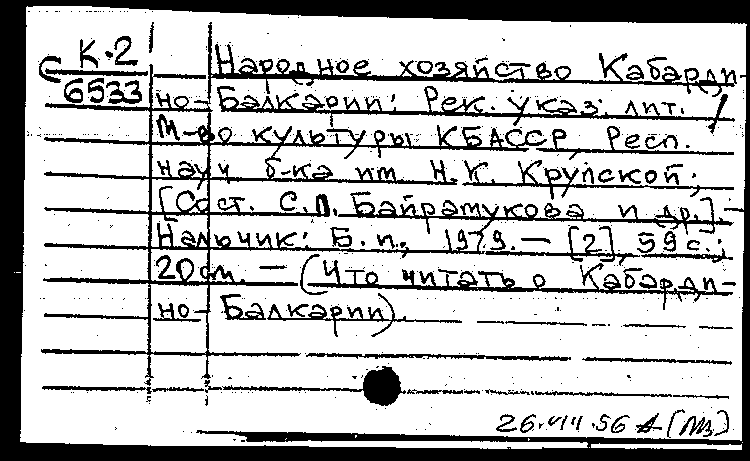 К.2
6533
Народное хозяйство Кабарди-
но-Балкарии: Рек. указ. лит. /
М-во культуры КБАССР, Респ.
науч. б-ка им. Н.К. Крупской;
[Сост. С.П. Байрамукова и др.]. -
Нальчик: Б.и., 1979. — [2], 59 с.;
20 см. — (Что читать о Кабарди-
но-Балкарии).
26.VIII.56